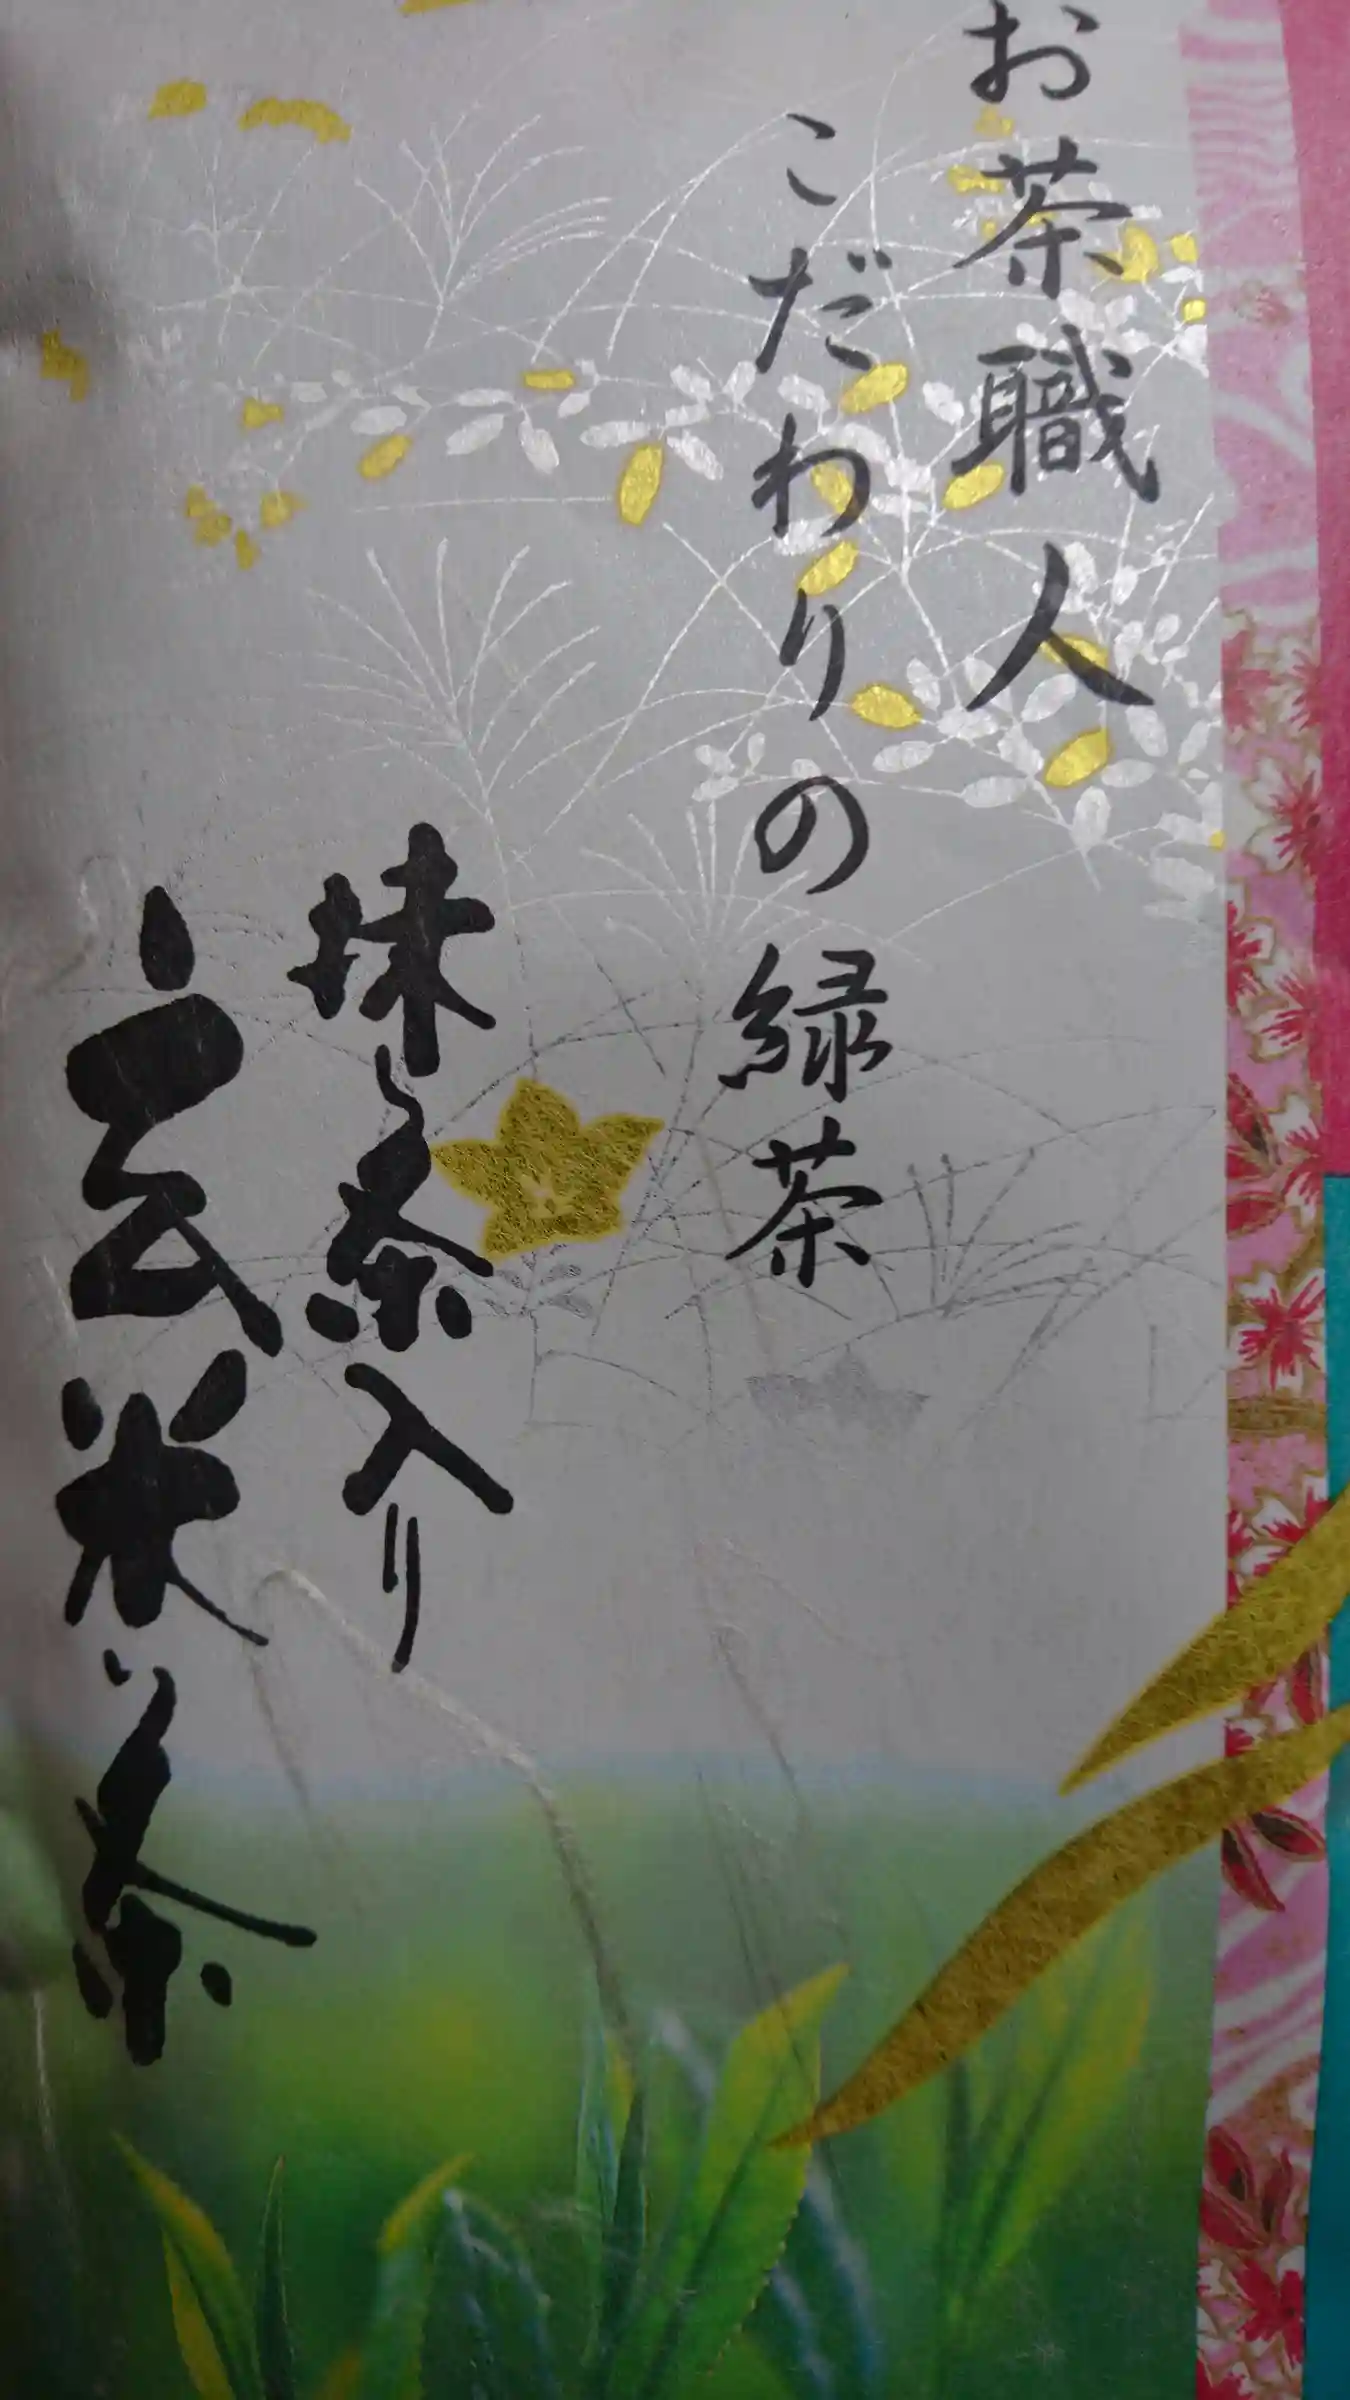 お茶職人
こだわりの緑茶
抹茶入り
玄米茶